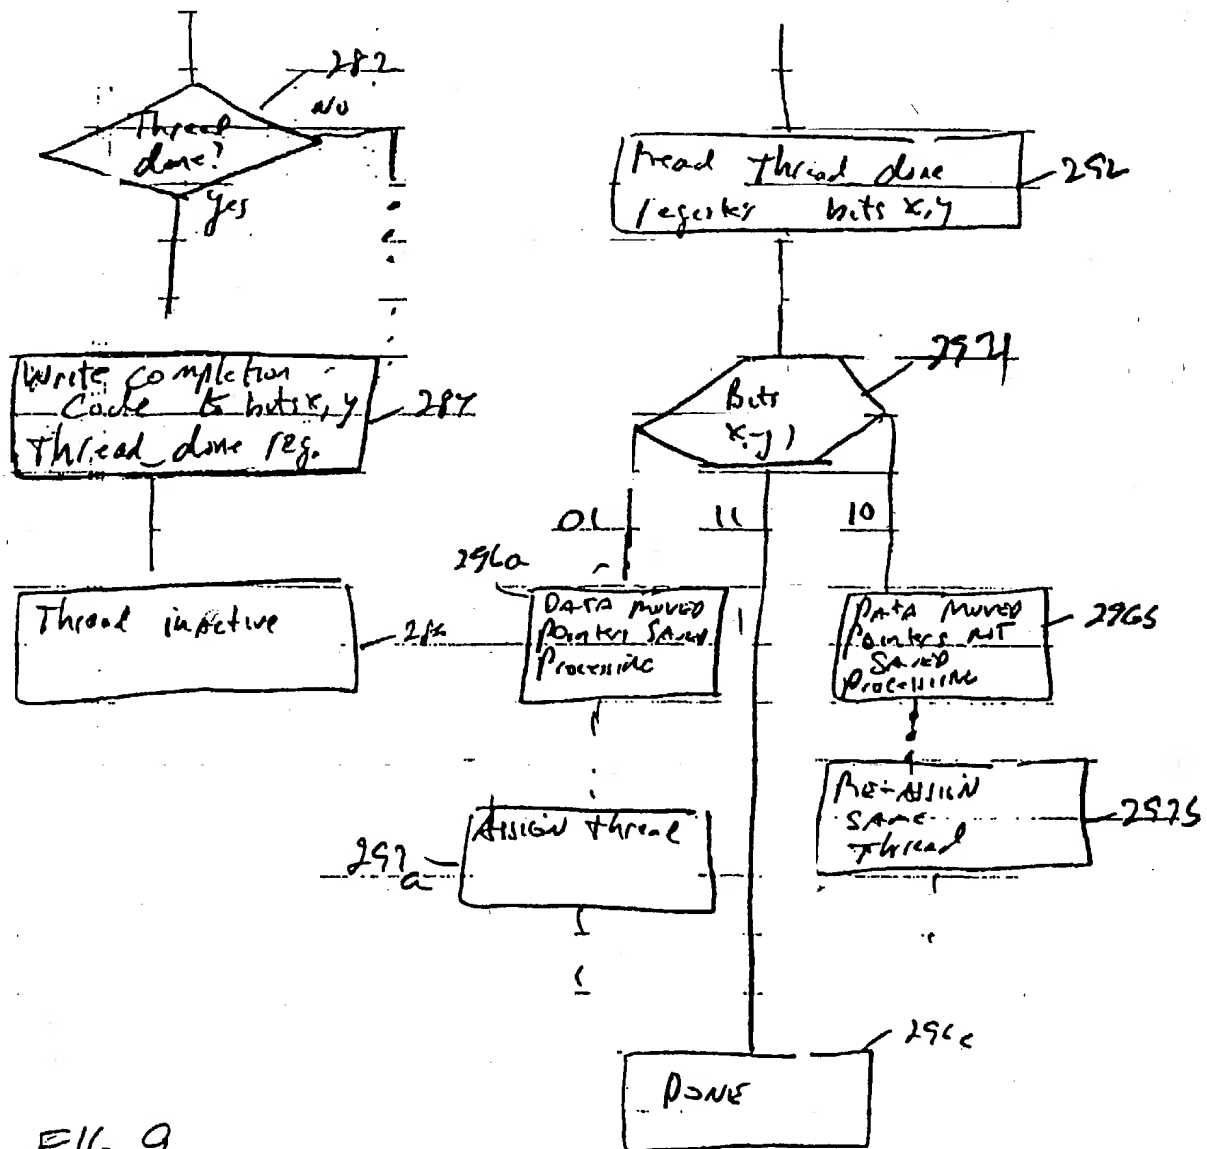 282
No
Thread
done?
yes
Write completion
Code to bits x, y
Thread_done reg.
284
Thread inactive
286
Read Thread done
register bits x, y
292
294
Bits
x, y
01
11
10
296a
DATA MOVED
Pointers SAVED
Processing
DATA MOVED
Pointers NOT
SAVED
Processing
296b
ASSIGN Thread
297
a
RE-ASSIGN
SAME
Thread
297b
296c
DONE
FIG. 9